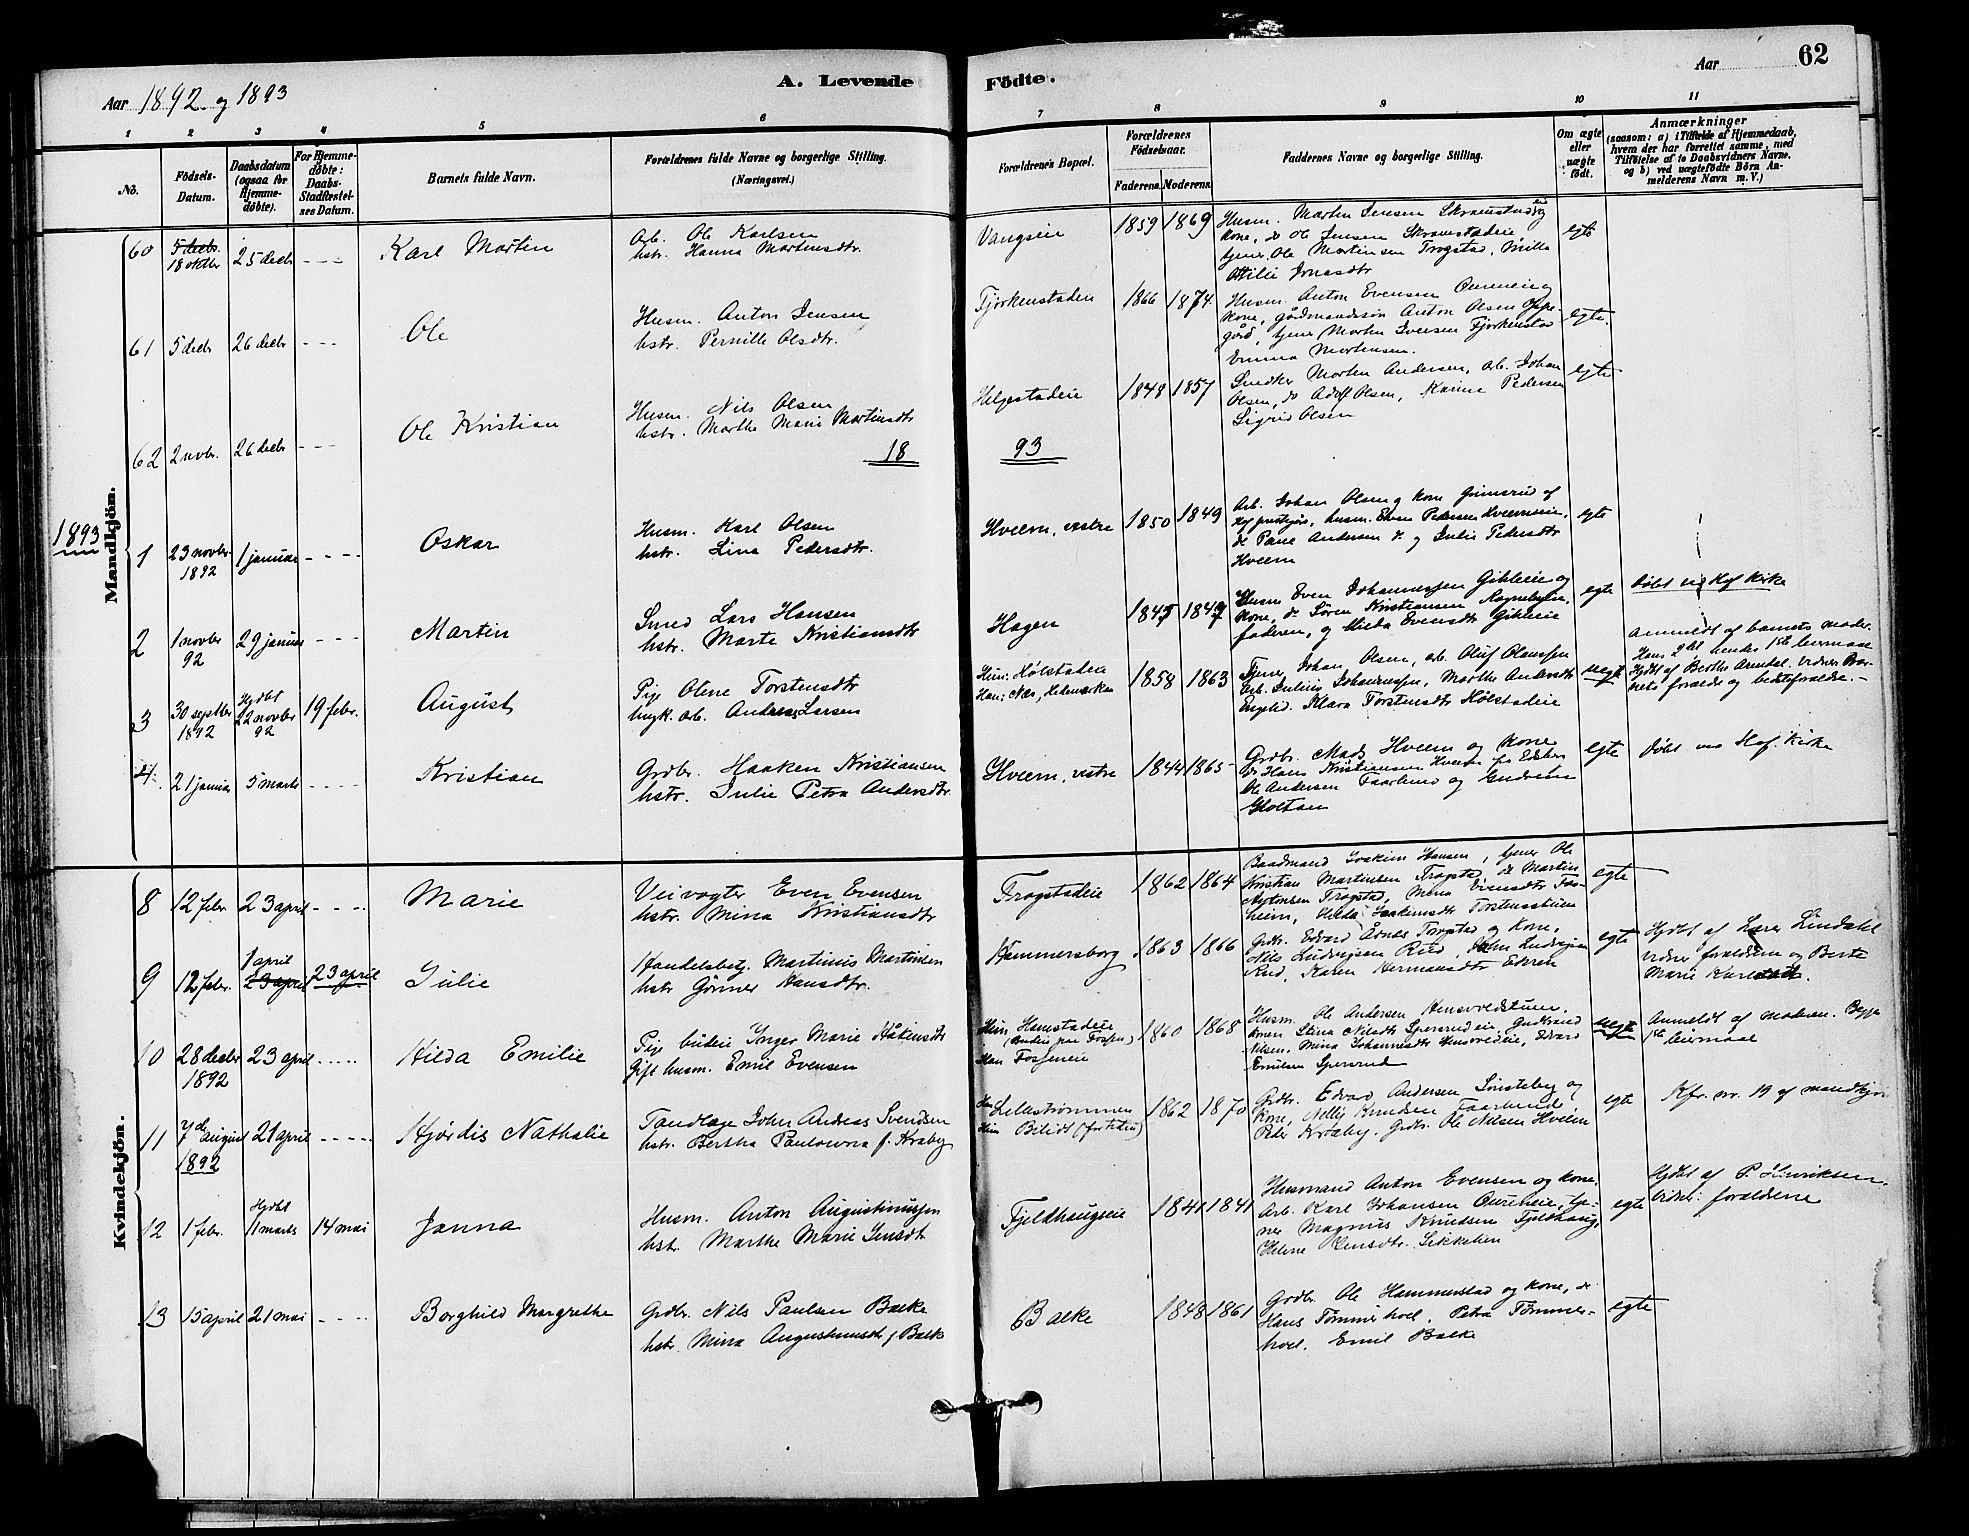 Aar 1892 og 1893
A. Levende Födte.
Aar
62
1 2 3 4 5 6 7 8 9 10 11
No.
Födsels-Datum.
Daabsdatum (ogsaa for Hjemme-döbte).
For Hjemme-döbte: Daabs-Stadfæstelses Datum.
Barnets fulde Navn.
Forældrenes fulde Navne og borgerlige Stilling. (Næringsvei.)
Forældrenes Bopæl.
Forældrenes Födselsaar.
Faderens. Moderens.
Faddernes Navne og borgerlige Stilling.
Om ægte eller uægte födt.
Anmærkninger
(saasom: a) i Tilfælde af Hjemmedaab,
hvem der har forrettet samme, med
Tilföielse af to Daabsvidners Navne.
og b) ved uægtefödte Börn An-
melderens Navn m. V.)
Mandkjön.
60 5 decbr. 18 oktbr 25 decbr - - - Karl Morten
Arb. Ole Karlsen
hstr. Hanna Martinsdtr.
Vangseie 1859 1869
Husm. Morten Jensen Skramstadeie og
kone, do Ole Jensen Skramstadeie,
tjener Ole Martinsen Trogstad, Milla
Otilie Jonasdtr
egte
61 5 decbr 26 decbr - - - Ole
Husm. Anton Jensen
hstr. Pernille Olsdtr.
Fjorkenstaden 1866 1874
Husm. Anton Evensen Oureneie og
kone, gårdmandssön Anton Olsen Oppe-
gård, tjener Morten Iversen Fjorkenstad
Emma Mortensen.
egte.
62 2 novbr. 26 decbr - - - Ole Kristian
Husm. Nils Olsen
hstr. Marthe Marie Martinsdtr
Helgestadeie 1848 1857
Snedker Morten Andersen, arb. Johan
Olsen, do Adolf Olsen, Karine Pedersen
Sigrid Olsen
egte
18 93
1893
1 23 novbr. 1892 1 januar - - - - Oskar
Husm. Karl Olsen
hstr. Lina Pedersdtr.
Hveem, vestre 1850 1849
Arb. Johan Olsen og kone Grimsrud af
prestegj., husm. Even Pedersen Hveemseie,
do Paul Andersen do og Julie Pedersdtr
Hveem
egte
2 1 novbr 92 29 januar - - - Martin
Smed Lars Hansen
hstr. Marte Kristiansdtr
Hagen 1845 1849
Husm Even Johannessen Gihleeie og
kone, do Sören Kristiansen
faderen, og Hilda Evensdtr Gihleeie
egte
Döbt ved Hof kirke
3 30 septbr 1892 Hjdbt 22 novbr 92 19 febr. August
Pige Oline Torstensdtr
Ungk. arb. Andreas Larsen
Hun: Hölstadeie
Han: Nes, Hedemarken
1858 1863
Tjener Johan Olsen, arb. Oluf Olaussen
Arb. Julius Johannessen, Marthe Andersdtr
Engelid. Klara Torstensdtr Hölstadeie
uegte
Anmeldt af barnets moder.
Hans 2det hendes 1ste leiermaal
Hjdbt af Berthe Arentsl. vidner Bar-
nets forældre og bedsteforældre. -
4. 21 januar 5 marts - - - - Kristian
Grdbr. Haaken Kristiansen
hstr. Julie Petra Andersdtr.
Hveem, vestre 1844 1865
Grdbr. Mads Hveem og kone
do Hans Kristiansen Hveem
Ole Andersen Faarlund og Gudrine
egte
Döbt ved Hof. Kirke
Kvindekjön.
8 12 febr 23 april - - - - Marie
Veivogter Even Evensen
hstr. Mina Kristiansdtr
Trogstadeie 1862 1864
Baadmand Joakim Hansen, tjener Ole
Kristian Martinsen Trogstad, do Martin
Antonsen Trogstad, Mina
heim, Hilda Joakimsdtr Torstenstuen
egte
9 12 febr. 1 april 23 april 23 april Julie
Handelsbetj. Martinus Martinsen
hstr Gönner Hansdtr.
Hammersborg 1863 1866
Grdbr. Edvard Årnæs Trogstad og kone,
Nils Ludvigsen Rud, John Ludvigsen
Rud, Karen Hermansdtr Ekren
egte
Hjdbt af Lars Lindahl
vidner forældrene og Berte
Marie Karlsdtr.
10 28 decbr 1892 23 april - - - - Hilda Emilie
Pige budeie Inger Marie Håkensdtr
Gift husm. Emil Evensen
Hun Hanestadeie
(Budeie paa Fossen)
Han Fosseneie
1860 1868
Husm. Ole Andersen Hensvoldstuen,
konen Stina Nilsdtr Spersrudeie, Gudbrand
Nilsen, Mina Johannesdtr Hensvoldeie, Edvard
Emilsen Spersrud
uegte
Anmeldt af moderen. Begge
1ste leiermaal
11 7de august 1892 21 april - - - - Hjördis Nathalie
Tandlæge John Andreas Svendsen
hstr. Bertha Paulowna f. Kraby
Han Lillestrømmen
Hun Bilidt (for tiden)
1862 1870
Grdbr. Edvard Andersen Sönsteby og
kone, Nelly Knudsen Faarlund,
Peder Kraby. Grdbr. Ole Nilsen Hveem
egte
Kfr. nr. 19 af mandkjön
12 1 febr. Hjdbt 11 marts 14 mai Janna
Husm. Anton Augustinussen
hstr. Marthe Marie Jensdtr
Fjeldhaugseie 1841 1841
Husmand Anton Evensen og kone,
Arb. Karl Johansen Oureneie, tje-
ner Magnus Knudsen Fjeldhaug,
Helene Jensdtr. Sikkelien
egte
Hjdbt af P. Henriksen.
Vidner: forældrene
13 15 april 21 mai - - - - Borghild Margrethe
Grdbr. Nils Paulsen Balke
hstr. Mina Augustinusdt f Balke
Balke 1848 1861
Grdbr. Ole Hammerstad og kone, do
Hans Tömmerhoel, Petra Tömmer-
hoel, Emil Balke
egte